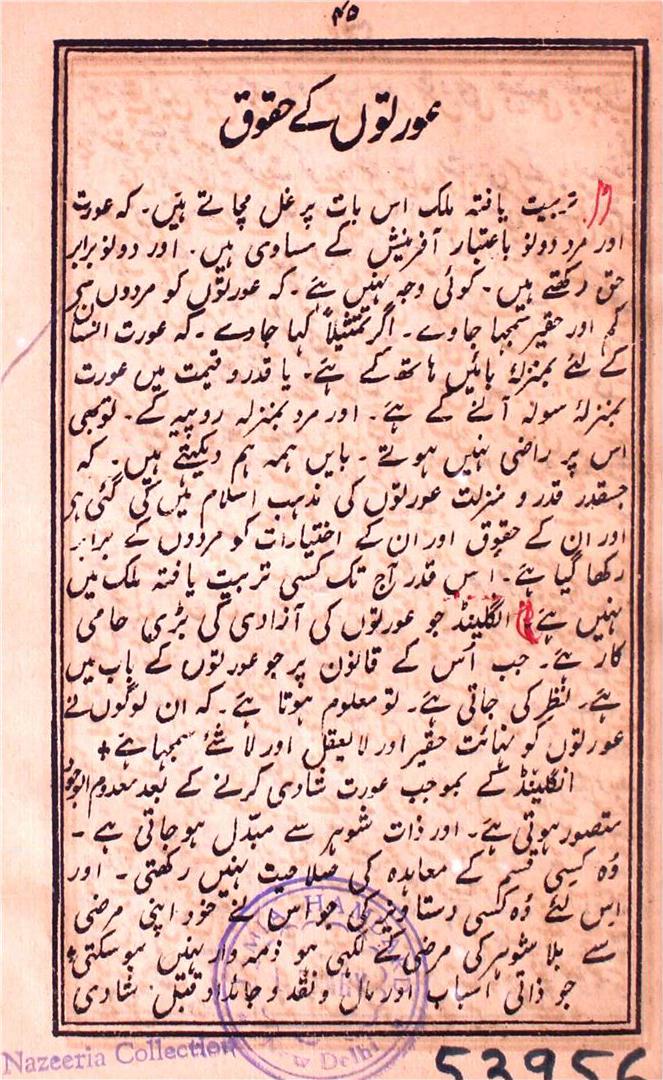 ۴۵
عورتوں کے حقوق
تربیت یافتہ ملک اس بات پر غل مچاتے ہیں۔ کہ عورت
اور مرد دونو باعتبار آفرینش کے مساوی ہیں۔ اور دونو برابر
حق رکھتے ہیں۔ کوئی وجہ نہیں ہے۔ کہ عورتوں کو مردوں سے
کم اور حقیر سمجہا جاوے۔ اگر تمثیلاً کہا جاوے۔ کہ عورت انسان
کے لئے بمنزلۂ بائیں ہاتھ کے ہے۔ یا قدر و قیمت میں عورت
بمنزلۂ سولہ آنے کے ہے۔ اور مرد بمنزلہ روپیہ کے۔ توبھی
اس پر راضی نہیں ہوتے۔ بایں ہمہ ہم دیکہتے ہیں۔ کہ
جسقدر قدر و منزلت عورتوں کی مذہب اسلام میں کی گئی ہے
اور ان کے حقوق اور ان کے اختیارات کو مردوں کے برابر
رکھا گیا ہے۔ اُس قدر آج تک کسی تربیت یافتہ ملک میں
نہیں ہے۔ انگلینڈ جو عورتوں کی آزادی کی بڑی حامی
کار ہے۔ جب اُس کے قانون پر جو عورتوں کے باب میں
ہے۔ نظر کی جاتی ہے۔ تو معلوم ہوتا ہے۔ کہ ان لوگوں نے
عورتوں کو نہائت حقیر اور لایعقل اور لاشئے سمجہا ہے +
انگلینڈ کے بموجب عورت شادی کرنے کے بعد معدوم الوجود
متصور ہوتی ہے۔ اور ذات شوہر سے مبدّل ہوجاتی ہے۔
وُہ کسی قسم کے معاہدہ کی صلاحیت نہیں رکھتی۔ اور
اِس لئے وُہ کسی دستاویز کی جو اس نے خود اپنی مرضی
سے بلا شوہر کی مرضی کے لکھی ہو ذمہ وار نہیں ہوسکتی
جو ذاتی اسباب اور مال و نقد و جائداد قبل شادی
JAMIA HAMDARD
New Delhi
Nazeeria Collection
53956